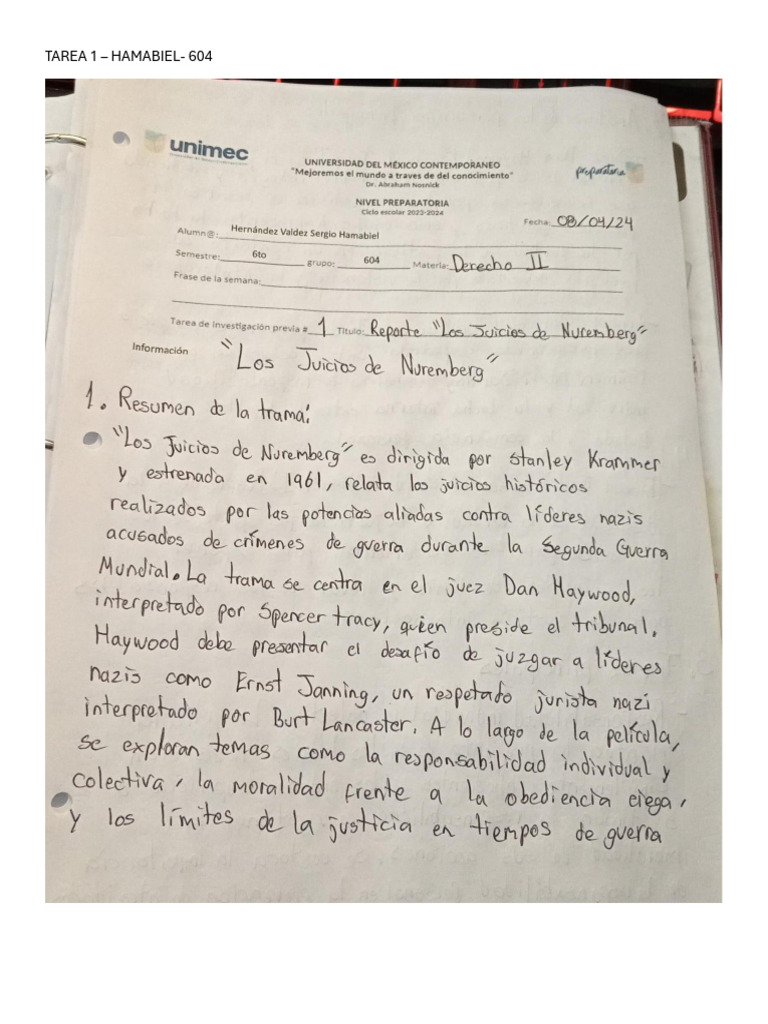 TAREA 1 – HAMABIEL- 604
unimec
UNIVERSIDAD DEL MÉXICO CONTEMPORANEO
"Mejoremos el mundo a traves de del conocimiento"
Dr. Abraham Nosnick
preparatoria
NIVEL PREPARATORIA
Ciclo escolar 2023-2024
Fecha: 08/04/24
Alumn@: Hernández Valdez Sergio Hamabiel
Semestre: 6to grupo: 604 Materia: Derecho II
Frase de la semana:
Tarea de investigación previa # 1 Titulo: Reporte "Los Juicios de Nuremberg"
Información "Los Juicios de Nuremberg"
1. Resumen de la trama:
"Los Juicios de Nuremberg" es dirigida por Stanley Krammer
y estrenada en 1961, relata los juicios históricos
realizados por las potencias aliadas contra líderes nazis
acusados de crímenes de guerra durante la Segunda Guerra
Mundial. La trama se centra en el juez Dan Haywood,
interpretado por Spencer tracy, quien preside el tribunal.
Haywood debe presentar el desafío de juzgar a líderes
nazis como Ernst Janning, un respetado jurista nazi
interpretado por Burt Lancaster. A lo largo de la película,
se exploran temas como la responsabilidad individual y
colectiva, la moralidad frente a la obediencia ciega,
y los límites de la justicia en tiempos de guerra